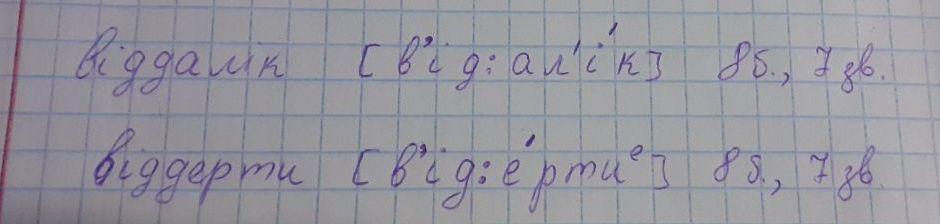 віддалік [в'ід:ал'і́к] 8б., 7 зв.
віддерти [в'ід:е́рти^е] 8б., 7 зв.